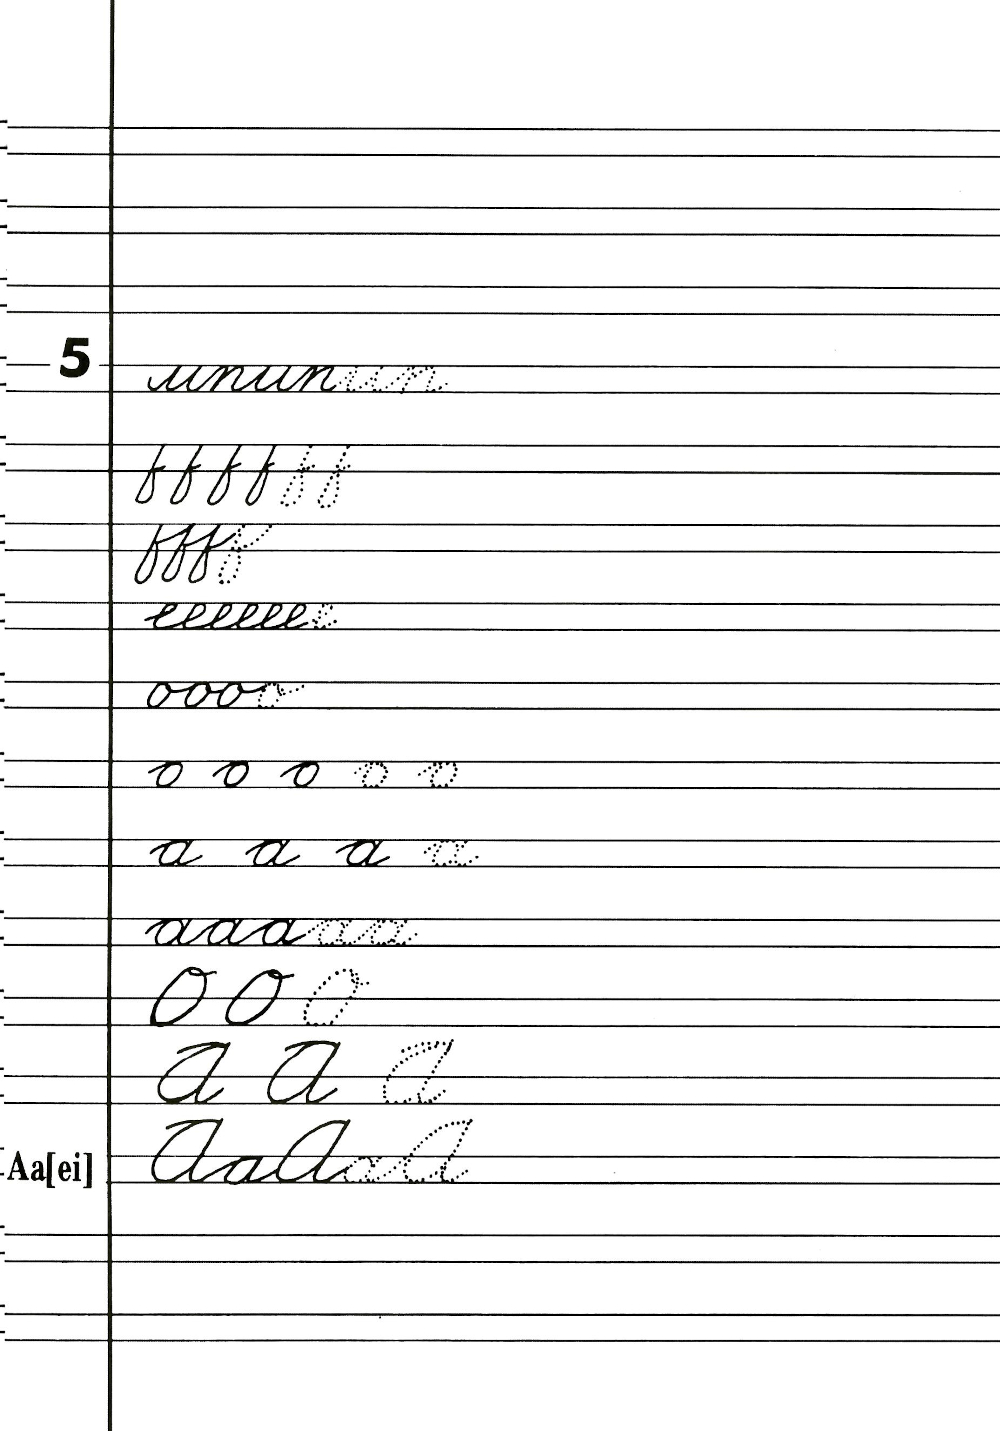 5 ununununun
f f f f f f
ffff
eeeeeee
oooo
o o o o o
a a a a
aaaaa
O O O
A A A
Aa[ei] AaAaA